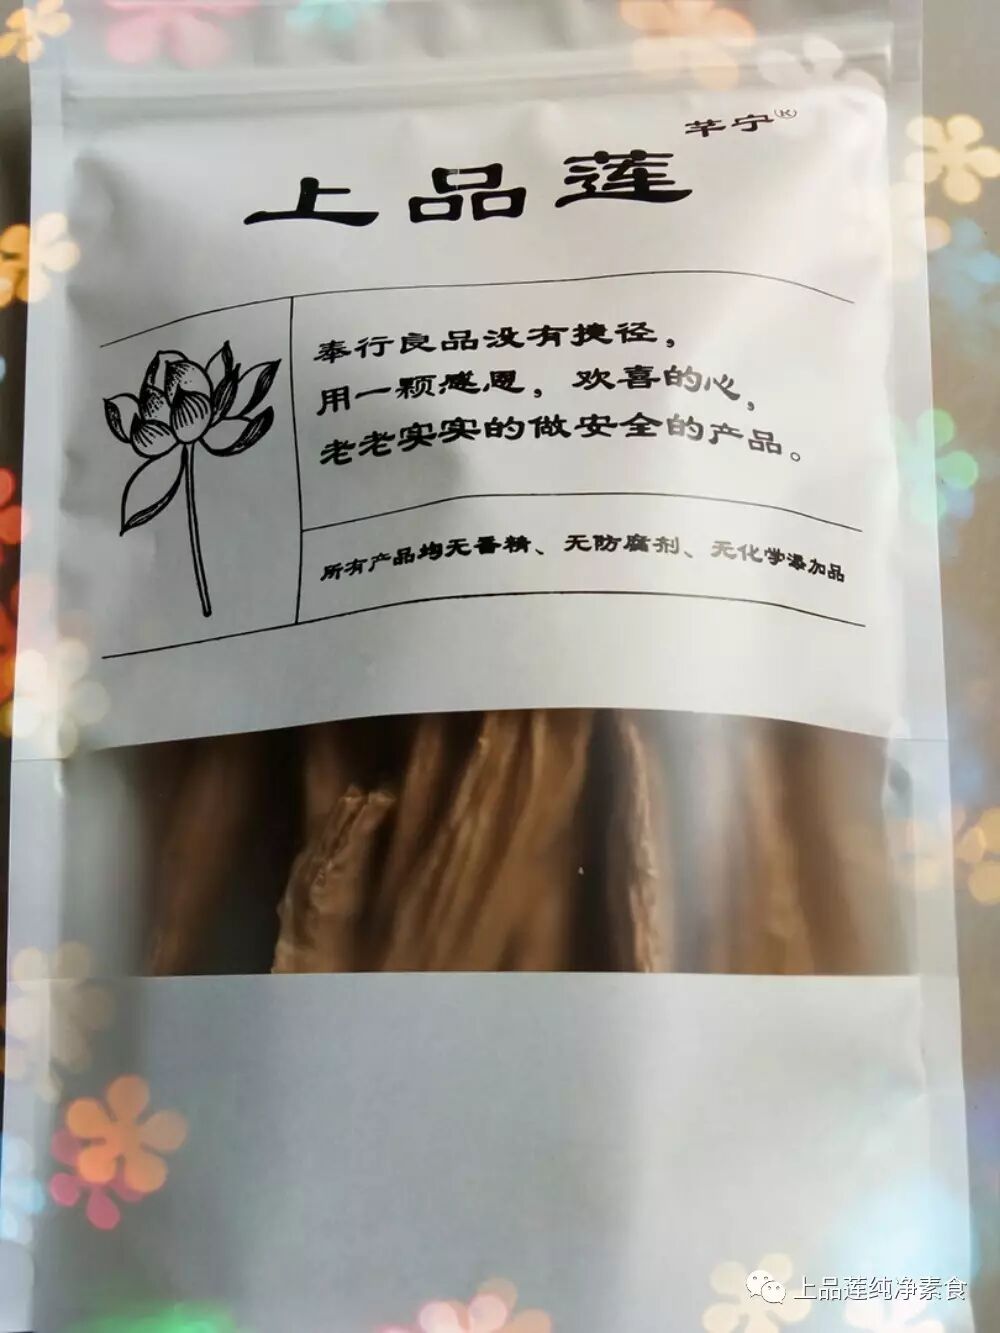 芊宁®
上品莲
奉行良品没有捷径，
用一颗感恩，欢喜的心，
老老实实的做安全的产品。
所有产品均无香精、无防腐剂、无化学添加品
上品莲纯净素食